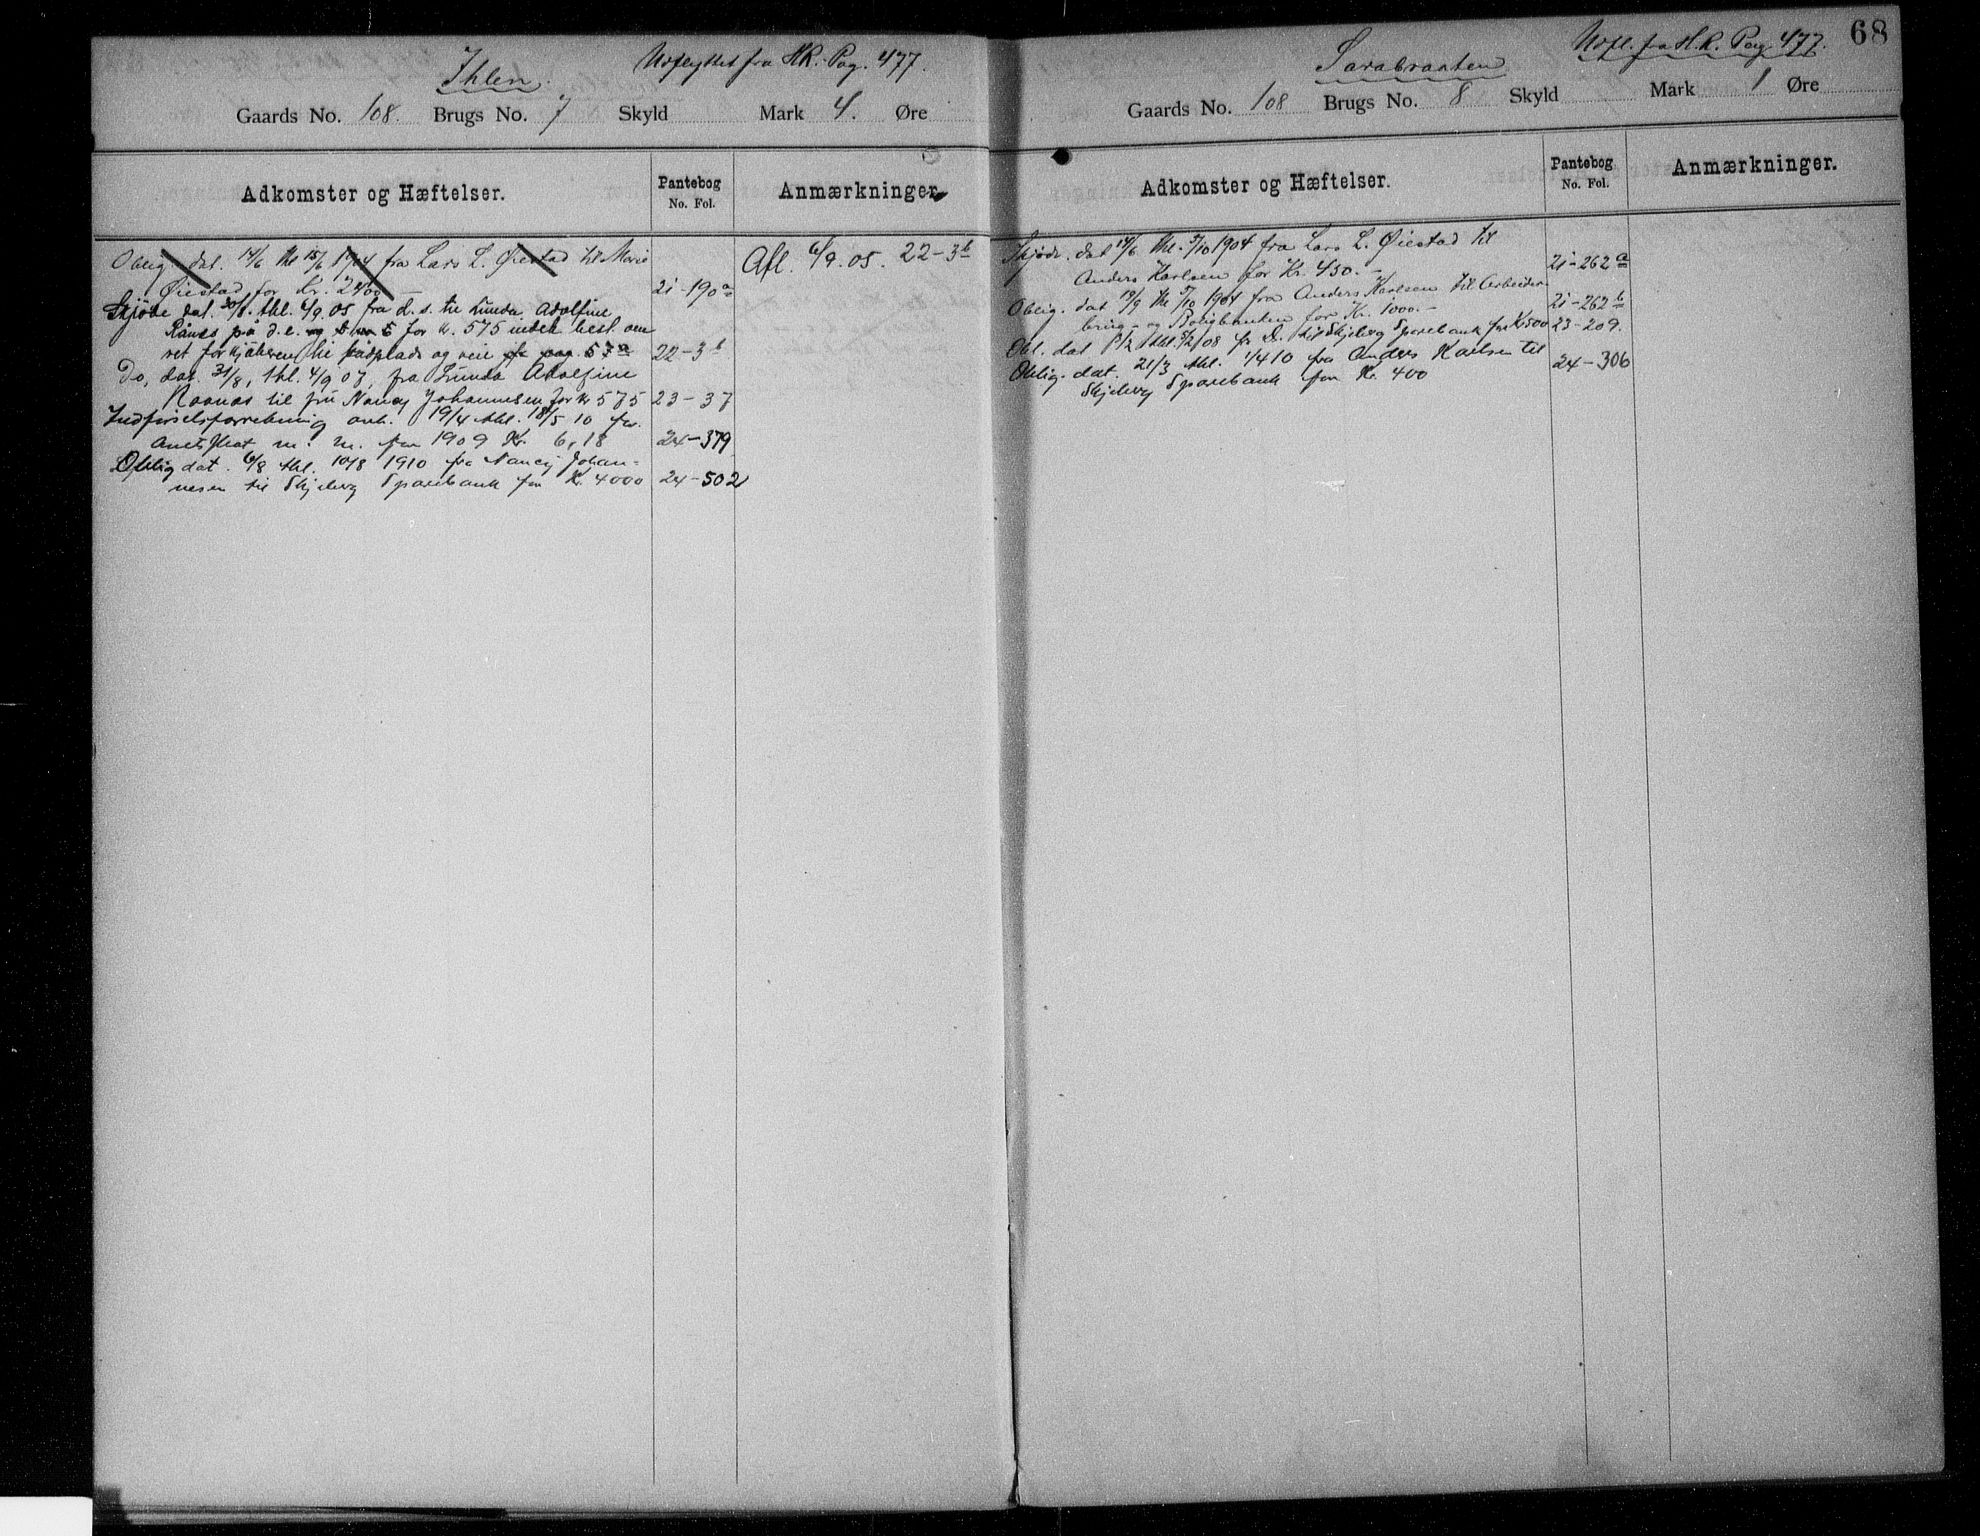 Ihlen. Udflyttet fra H.R. Pag. 477.
Gaards No. 108. Brugs No. 7 Skyld Mark 4. Øre
Adkomster og Hæftelser. Pantebog No. Fol. Anmærkninger.
Oblig. dat. 14/6 thl 15/6 1904 fra Lars L. Øiestad til Marie
Øiestad for Kr. 2400 — 21-190 a
Afl. 6/9. 05. 22-3 b
Skjøde dat. 30/8. thl. 6/9. 05 fra d. s. til Lunda Adolfine
Rånås på d. e. for kr. 575 indeh. best. om
ret for kjøberen til pladsplads og veie pag. 57 a 22-3 b
Do, dat. 31/8, thl. 4/9 07, fra Lunda Adolfine
Raanås til fru Nancy Johannesen for kr 575 23-37
Indførselsforretning anh. 19/4 thl. 18/5 10 for
Amtsskat m. m. for 1909 Kr. 6,18 24-379
Oblig dat. 6/8 thl. 10/8 1910 fra Nancy Johan-
nesen til Skjeberg Sparebank for Kr. 4000 24-502
68
Sarabraaten Udfl. fra H.R. Pag 477.
Gaards No. 108 Brugs No. 8 Skyld Mark 1 Øre
Adkomster og Hæftelser. Pantebog No. Fol. Anmærkninger.
Skjøde. dat 14/6 thl. 5/10 1904 fra Lars L. Øiestad til
Anders Karlsen for Kr. 450.- 21-262 a
Oblig. dat 19/9 thl 5/10 1904 fra Anders Karlsen til Arbeider-
brug- og Boligbanken for Kr. 1000.- 21-262 b
Obl. dat 1/2 thl. 5/2 08 fr D. til Skjeberg Sparebank for Kr 500 23-209.
Oblig. dat. 21/3 thl. 1/4 10 fra Anders Karlsen til
Skjeberg Sparebank for Kr. 400 24-306